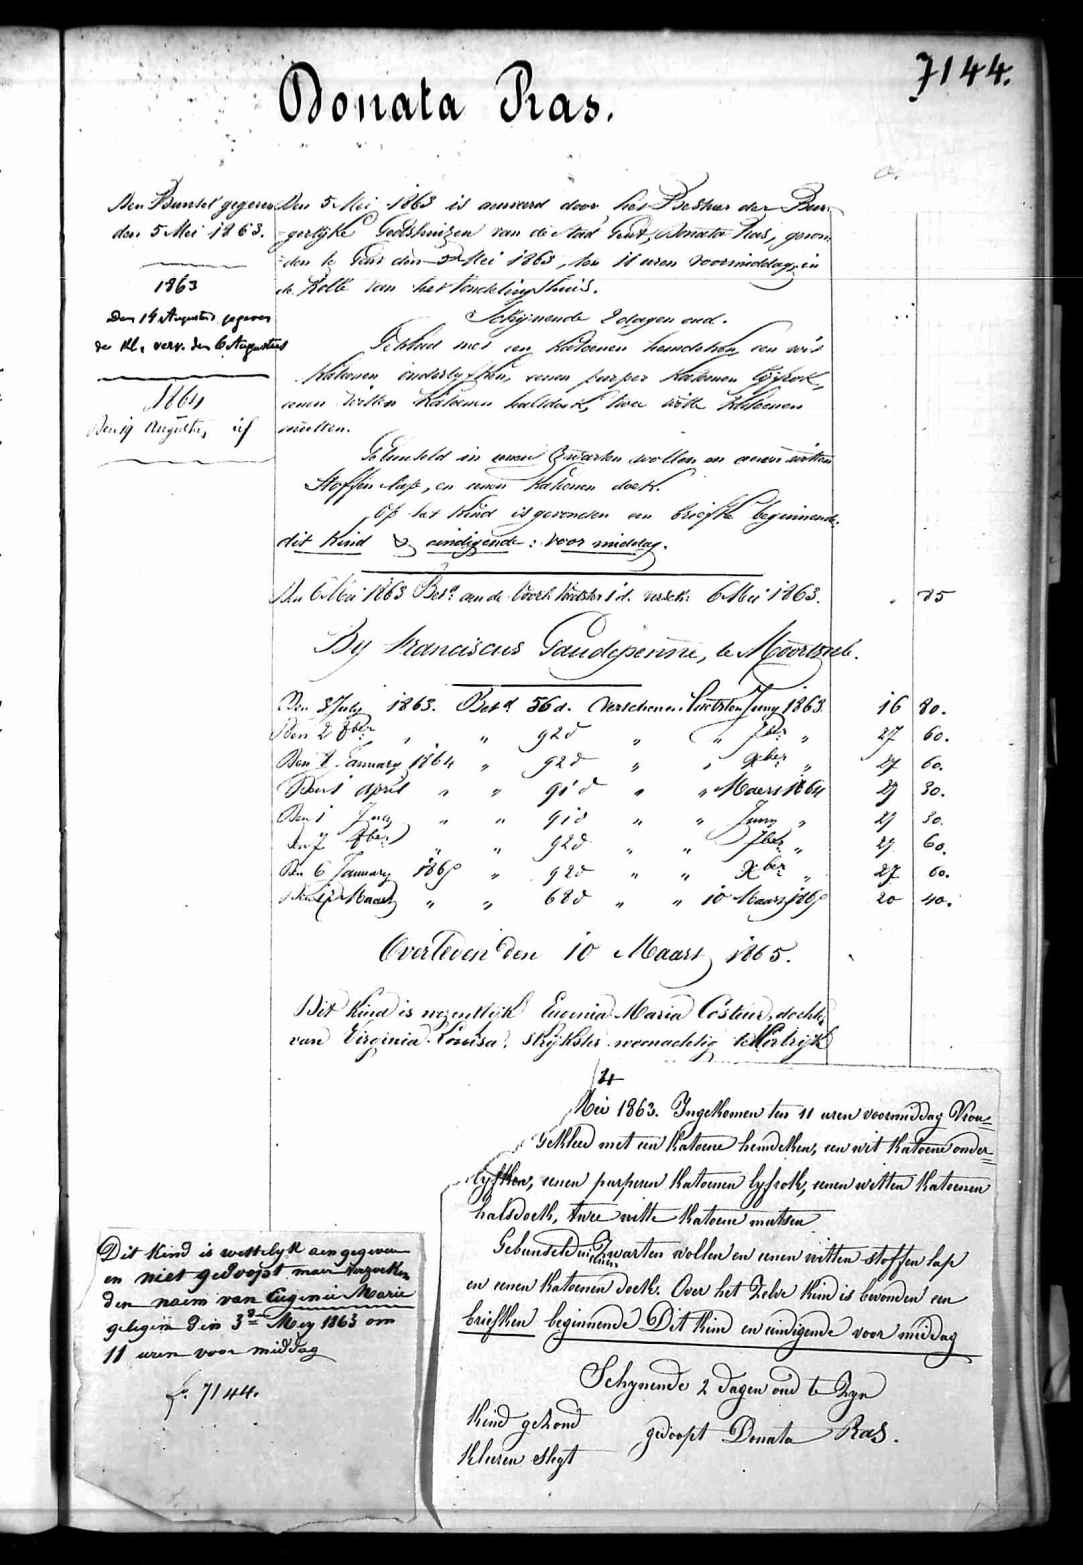 7144.
Donata Ras.
Den Bundel gegeven
den 5 Mei 1863.
1863
Den 19 Augustus gegeven
de kl. verv. den 6 Augustus
1864
Den 19 Augusti, if
Den 5 Mei 1863 is aanveerd door het Bestuur der Bur-
gerlijke Godshuizen van de stad Gent, Donata Ras, gevon-
den te Gent den Mei 1863, ten 11 uren voormiddag, in
de Rolle van het Vondelingshuis.
Schijnende 2 dagen oud.
Gekleed met een katoenen hemdeken, een wit
katoenen onderlyfken, eenen purper katoenen lyfrok,
eenen witten katoenen halsdoek, twee witte katoenen
mutsen.
Gebunseld in eenen zwarten wollen en eenen witten
stoffen lap, en eenen katoenen doek.
Op het kind is gevonden een briefke beginnende:
dit kind & eindigende: voor middag.
Den 6 Mei 1863 Bet. aan de Voorl. Voedster 1 d. versch. 6 Mei 1863. . 85
By Franciscus Gaudepenne, te Moortzele.
Den 3 July 1863. Bet. 56 d. Verschenen Juny 1863 16 80.
Den 2 8ber " " 92 d " " 7ber " 27 60.
Den 8 January 1864 " 92 d " " Xber " 27 60.
Den 1 April " " 91 d " " Maert 1864 27 30.
Den 1 July " " 91 d " " Juny " 27 30.
Den 7 8ber " " 92 d " " 7ber " 27 60.
Den 6 January 1865 " 92 d " " Xber " 27 60.
Maart " " 68 d " " 10 Maart 1865 20 40.
Overleden den 10 Maart 1865.
Dit kind is wezentlijk Eugenia Maria Costeur, dochter
van Virginia Louisa, strijkster woonachtig te Kortrijk
4
Mei 1863. Ingekomen ten 11 uren voormiddag Vrou-
Gekleed met een katoene hemdeken, een wit katoene onder-
lyfken, eenen purperen katoenen lyfrok, eenen witten katoenen
halsdoek, twee witte katoene mutsen
Gebunseld in eenen Zwarten wollen en eenen witten stoffen lap
en eenen katoenen doek. Over het Zelve kind is bevonden een
briefken beginnende Dit kind en eindigende voor middag
Schynende 2 dagen oud te Zyn
kind gezond gedoopt Donata Ras.
kleeren slegt
Dit kind is wettelyk aengegeven
en niet gedoopt maer verzoeken
den naem van Eugenie Marie
gelegen den 3den Mey 1863 om
11 uren voor middag
f. 7144.